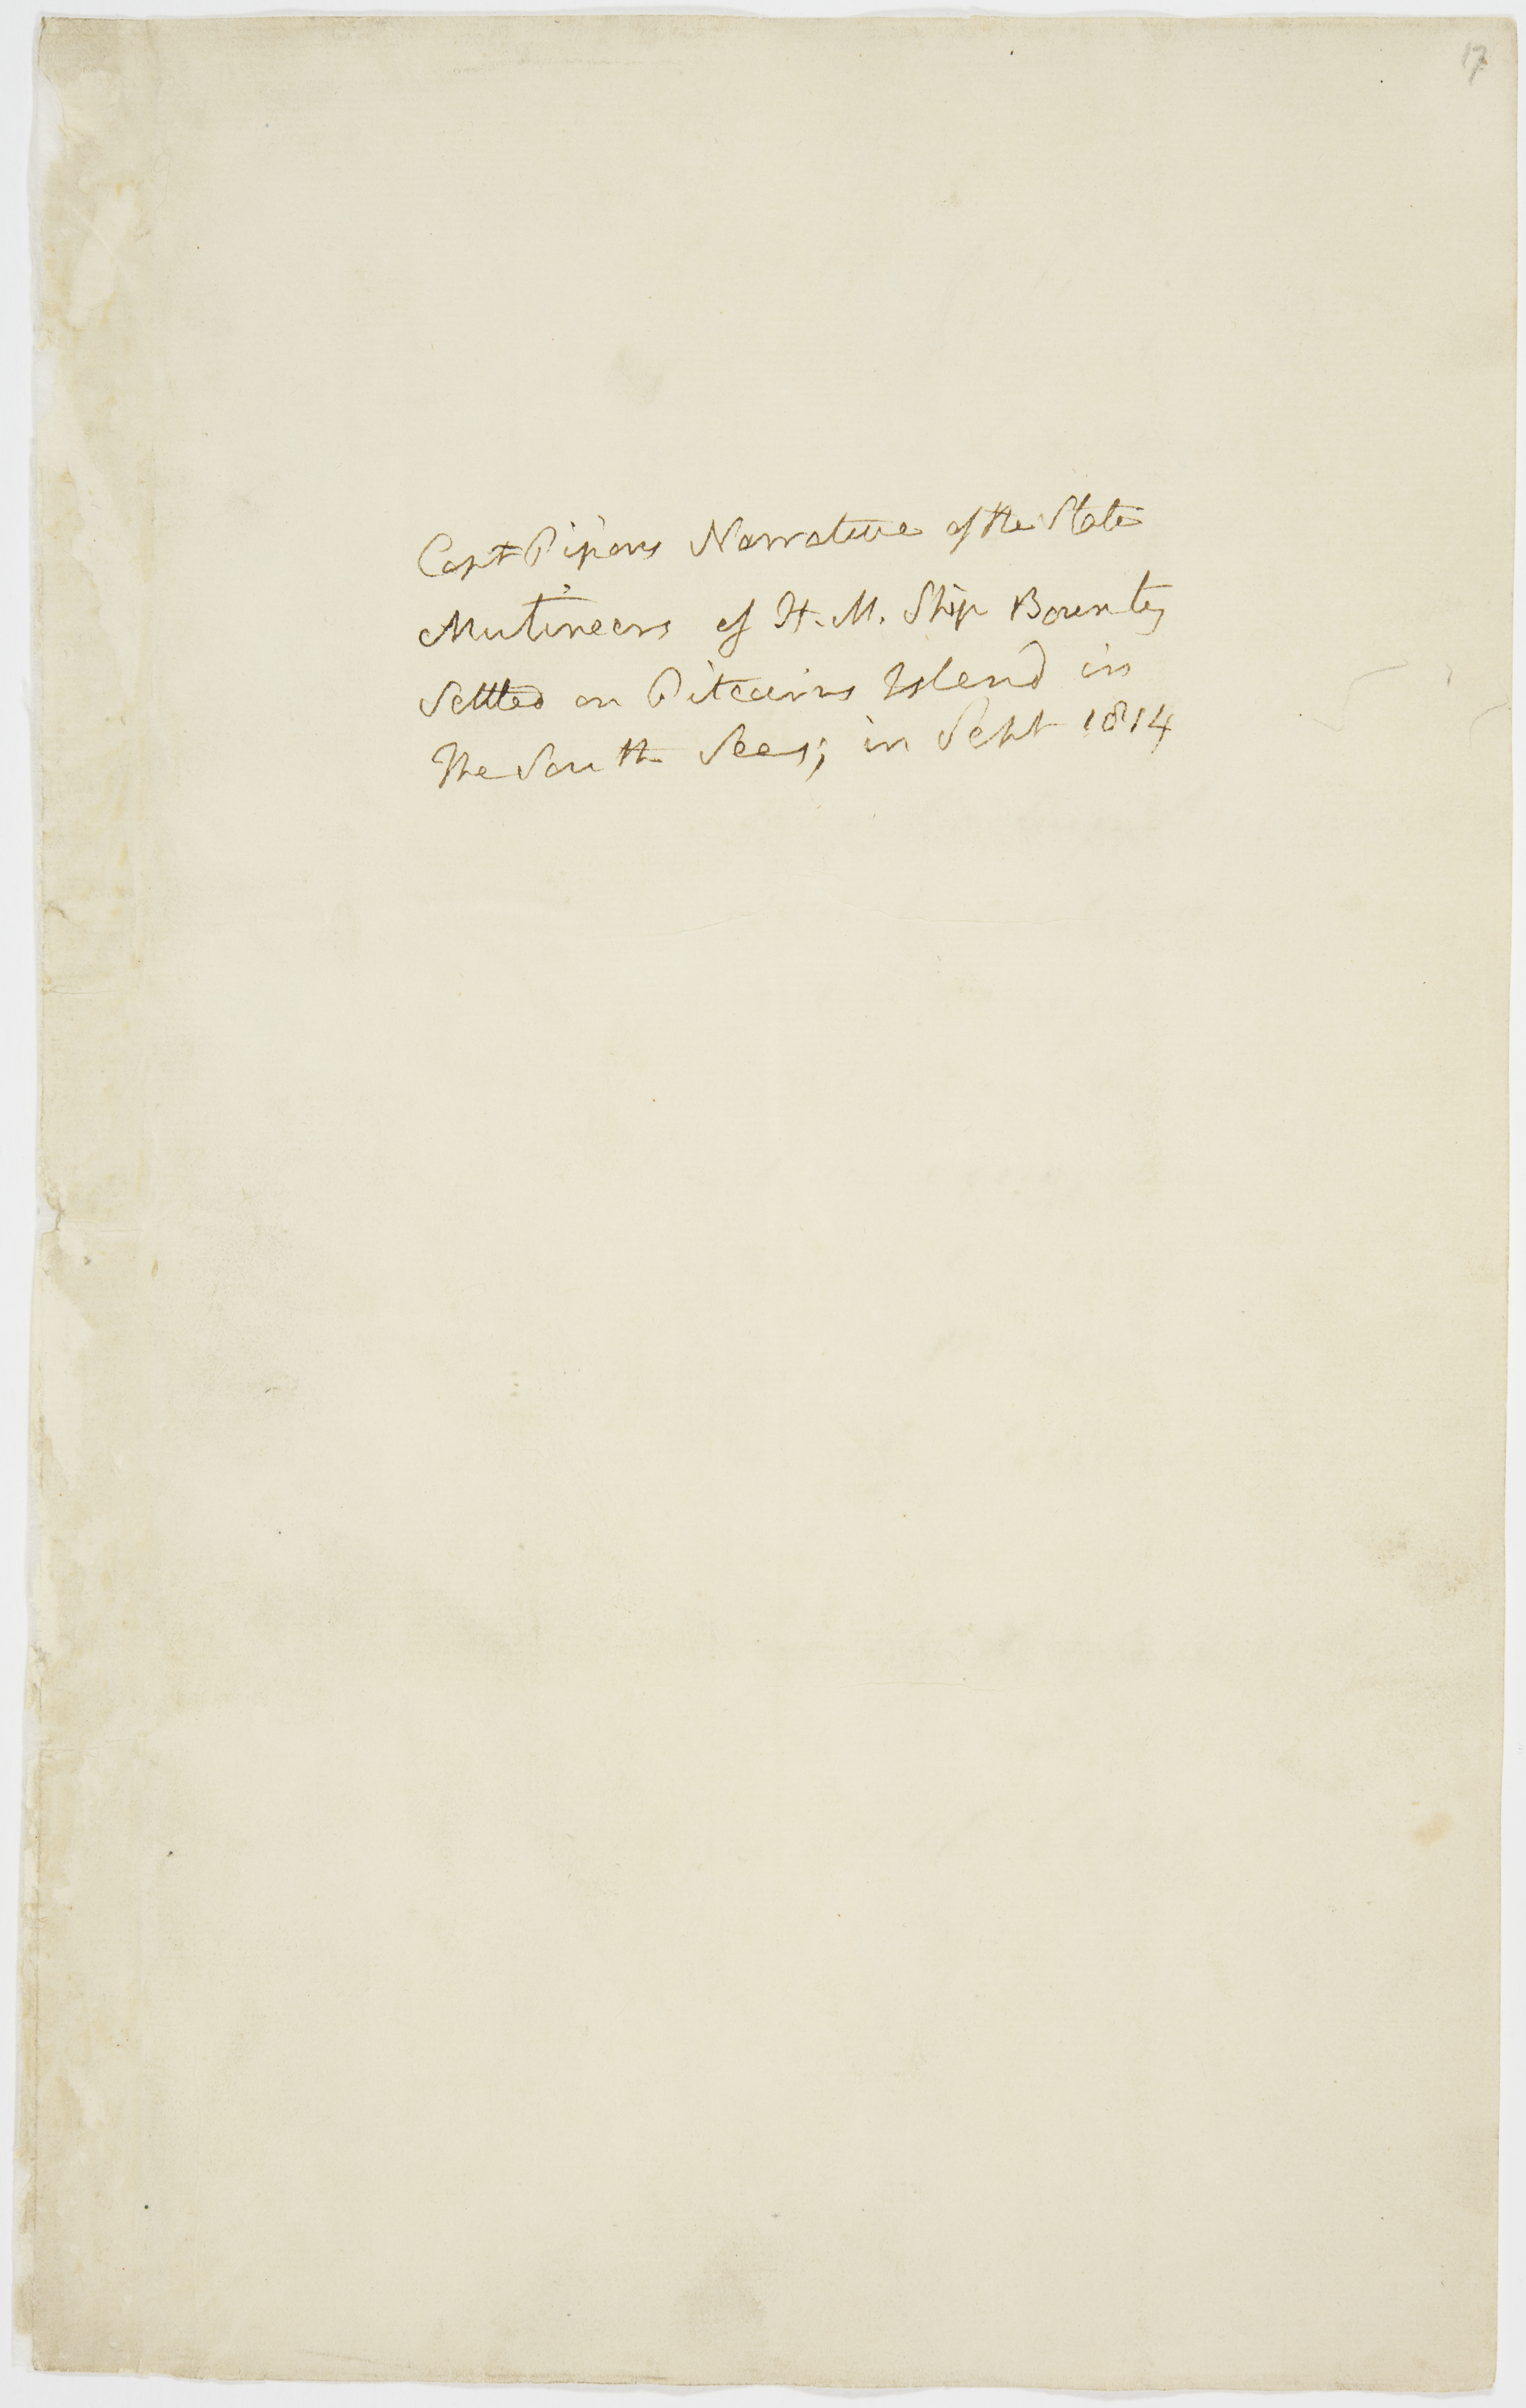 17
Capt Pipons Narrative of the State
Mutineers of H. M. Ship Bounty
Settled on Pitcairns Island in
The South Seas; in Sept 1814